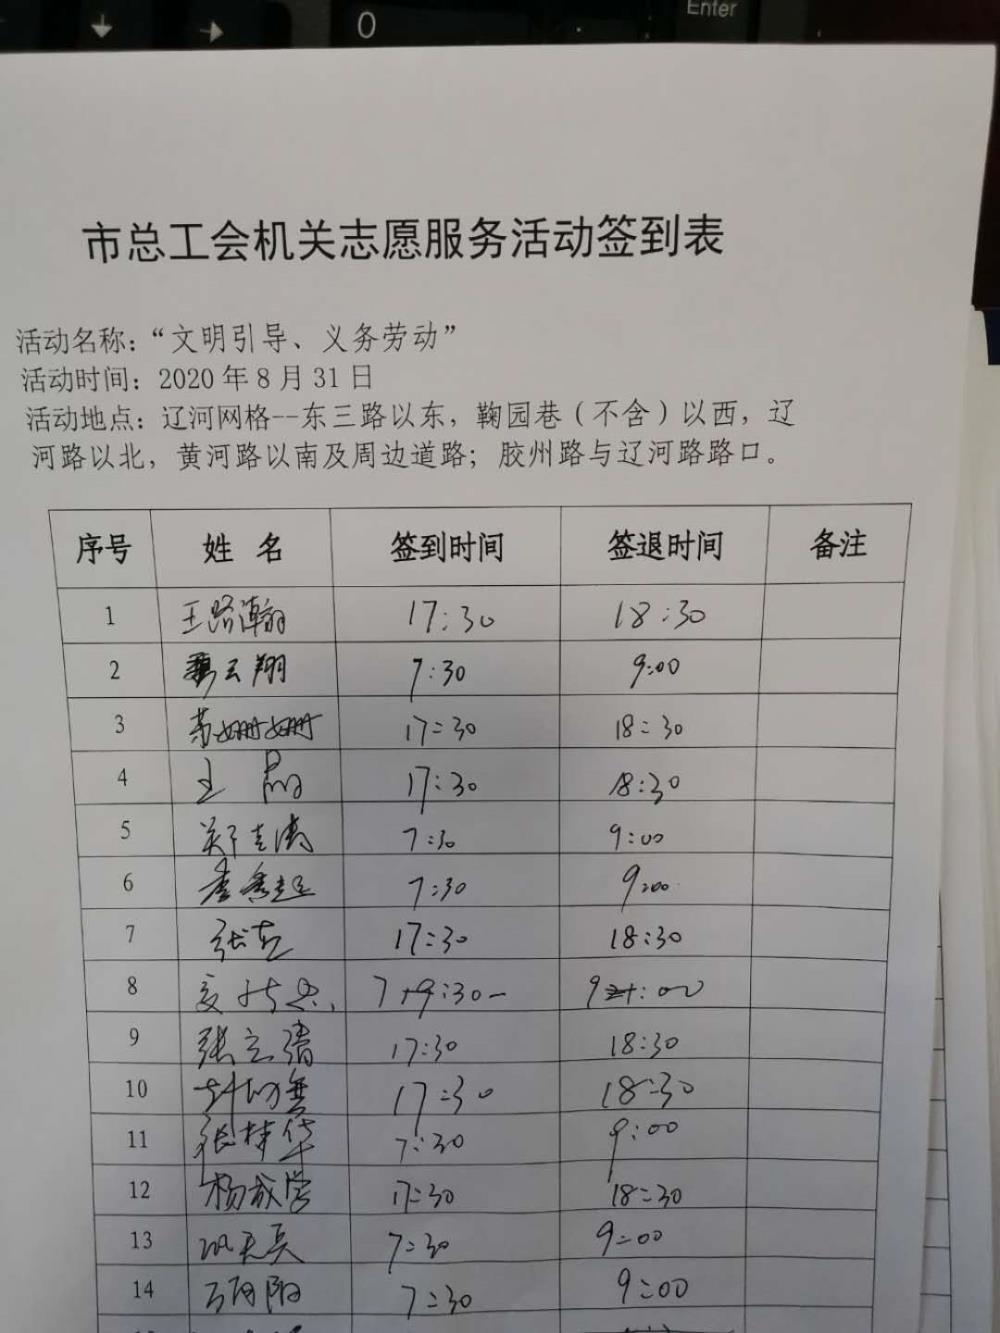 0
Enter
市总工会机关志愿服务活动签到表
活动名称：“文明引导、义务劳动”
活动时间：2020年8月31日
活动地点：辽河网格--东三路以东，鞠园巷（不含）以西，辽
河路以北，黄河路以南及周边道路；胶州路与辽河路路口。
序号 姓 名 签到时间 签退时间 备注
1 王路瀚 17:30 18:30
2 云翔 7:30 9:00
3 苏姗姗 17:30 18:30
4 王 17:30 18:30
5 郑 7:30 9:00
6 7:30 9:00
7 张 17:30 18:30
8 9:30 :00
9 张立清 17:30 18:30
10 17:30 18:30
11 张桂华 7:30 9:00
12 杨成学 17:30 18:30
13 7:30 9:00
14 阳 7:30 9:00